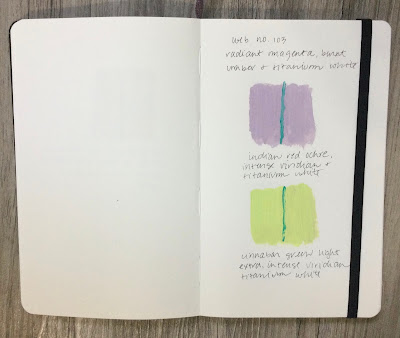 web no. 103
radiant magenta, burnt
umber + titanium white
indian red ochre,
intense viridian +
titanium white
cinnabar green light
extra, intense viridian
titanium white